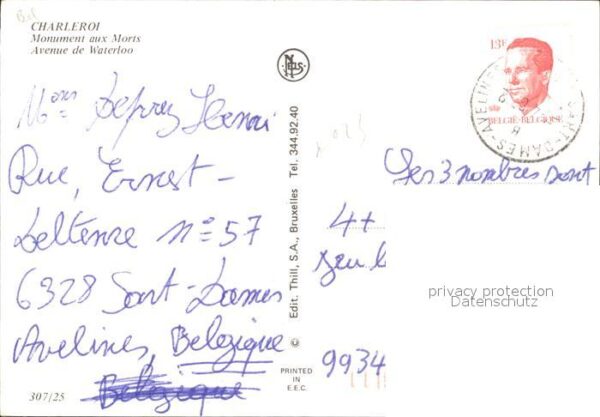 Bel
CHARLEROI
Monument aux Morts
Avenue de Waterloo
NELS
13F
BELGIË-BELGIQUE
SART-DAMES-AVELINES
Mons Deprez Henri
Rue, Ernest-
Deltenre n° 57
6328 Sart-Dames
Avelines, Belgique
Belgique
307/25
Edit. Thill, S.A., Bruxelles Tel. 344.92.40
©
PRINTED
IN
E.E.C.
Les 3 nombres sont
4+
9934
privacy protection
Datenschutz